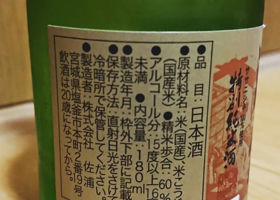 ●品目 日本酒
●原材料名:米(国産米)、米こう
(国産米)●精米歩合:60%
●アルコール分:15度以上16
未満 ●内容量:180ml
●製造年月:枠外下部に記載
●保存方法:直射日光をさけ
冷暗所で保管してください。
●製造者:株式会社 佐浦
宮城県塩釜市本町2番19号
飲酒は20歳になってから。
特別純米酒